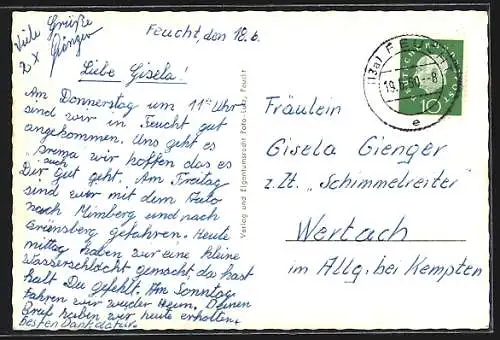 Viele Grüße
2 x Gienger
Feucht, den 18.6.
Liebe Gisela!
Am Donnerstag um 11 Uhr
sind wir in Feucht gut
angekommen. Uns geht es
prima wir hoffen das es
Dir auch gut geht. Am Freitag
sind wir mit dem Auto
nach Mimberg und nach
Grünsberg gefahren. Heute
mittag haben wir eine kleine
Wasserschlacht gemacht, da hast
halt Du gefehlt. Am Sonntag
fahren wir wieder Heim. Deinen
Brief haben wir heute erhalten.
besten Dank dafür.
Verlag und Eigentumsrecht Foto Feucht
(13a) FEUCHT
19.6.60.-8
e
DEUTSCHE BUNDESPOST
10
Fräulein
Gisela Gienger
z.Zt. „Schimmelreiter"
Wertach
im Allg. bei Kempten